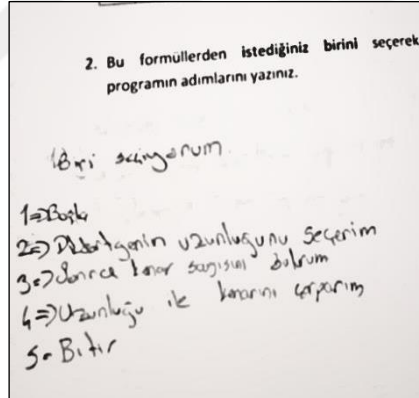 2. Bu formüllerden istediğiniz birini seçerek
programın adımlarını yazınız.
seçiyorum
1⇒Başla
2⇒ uzunluğunu seçerim
3⇒Sonra kenar sayısını bulurum
4⇒Uzunluğu ile kenarını çarparım
5- Bitir